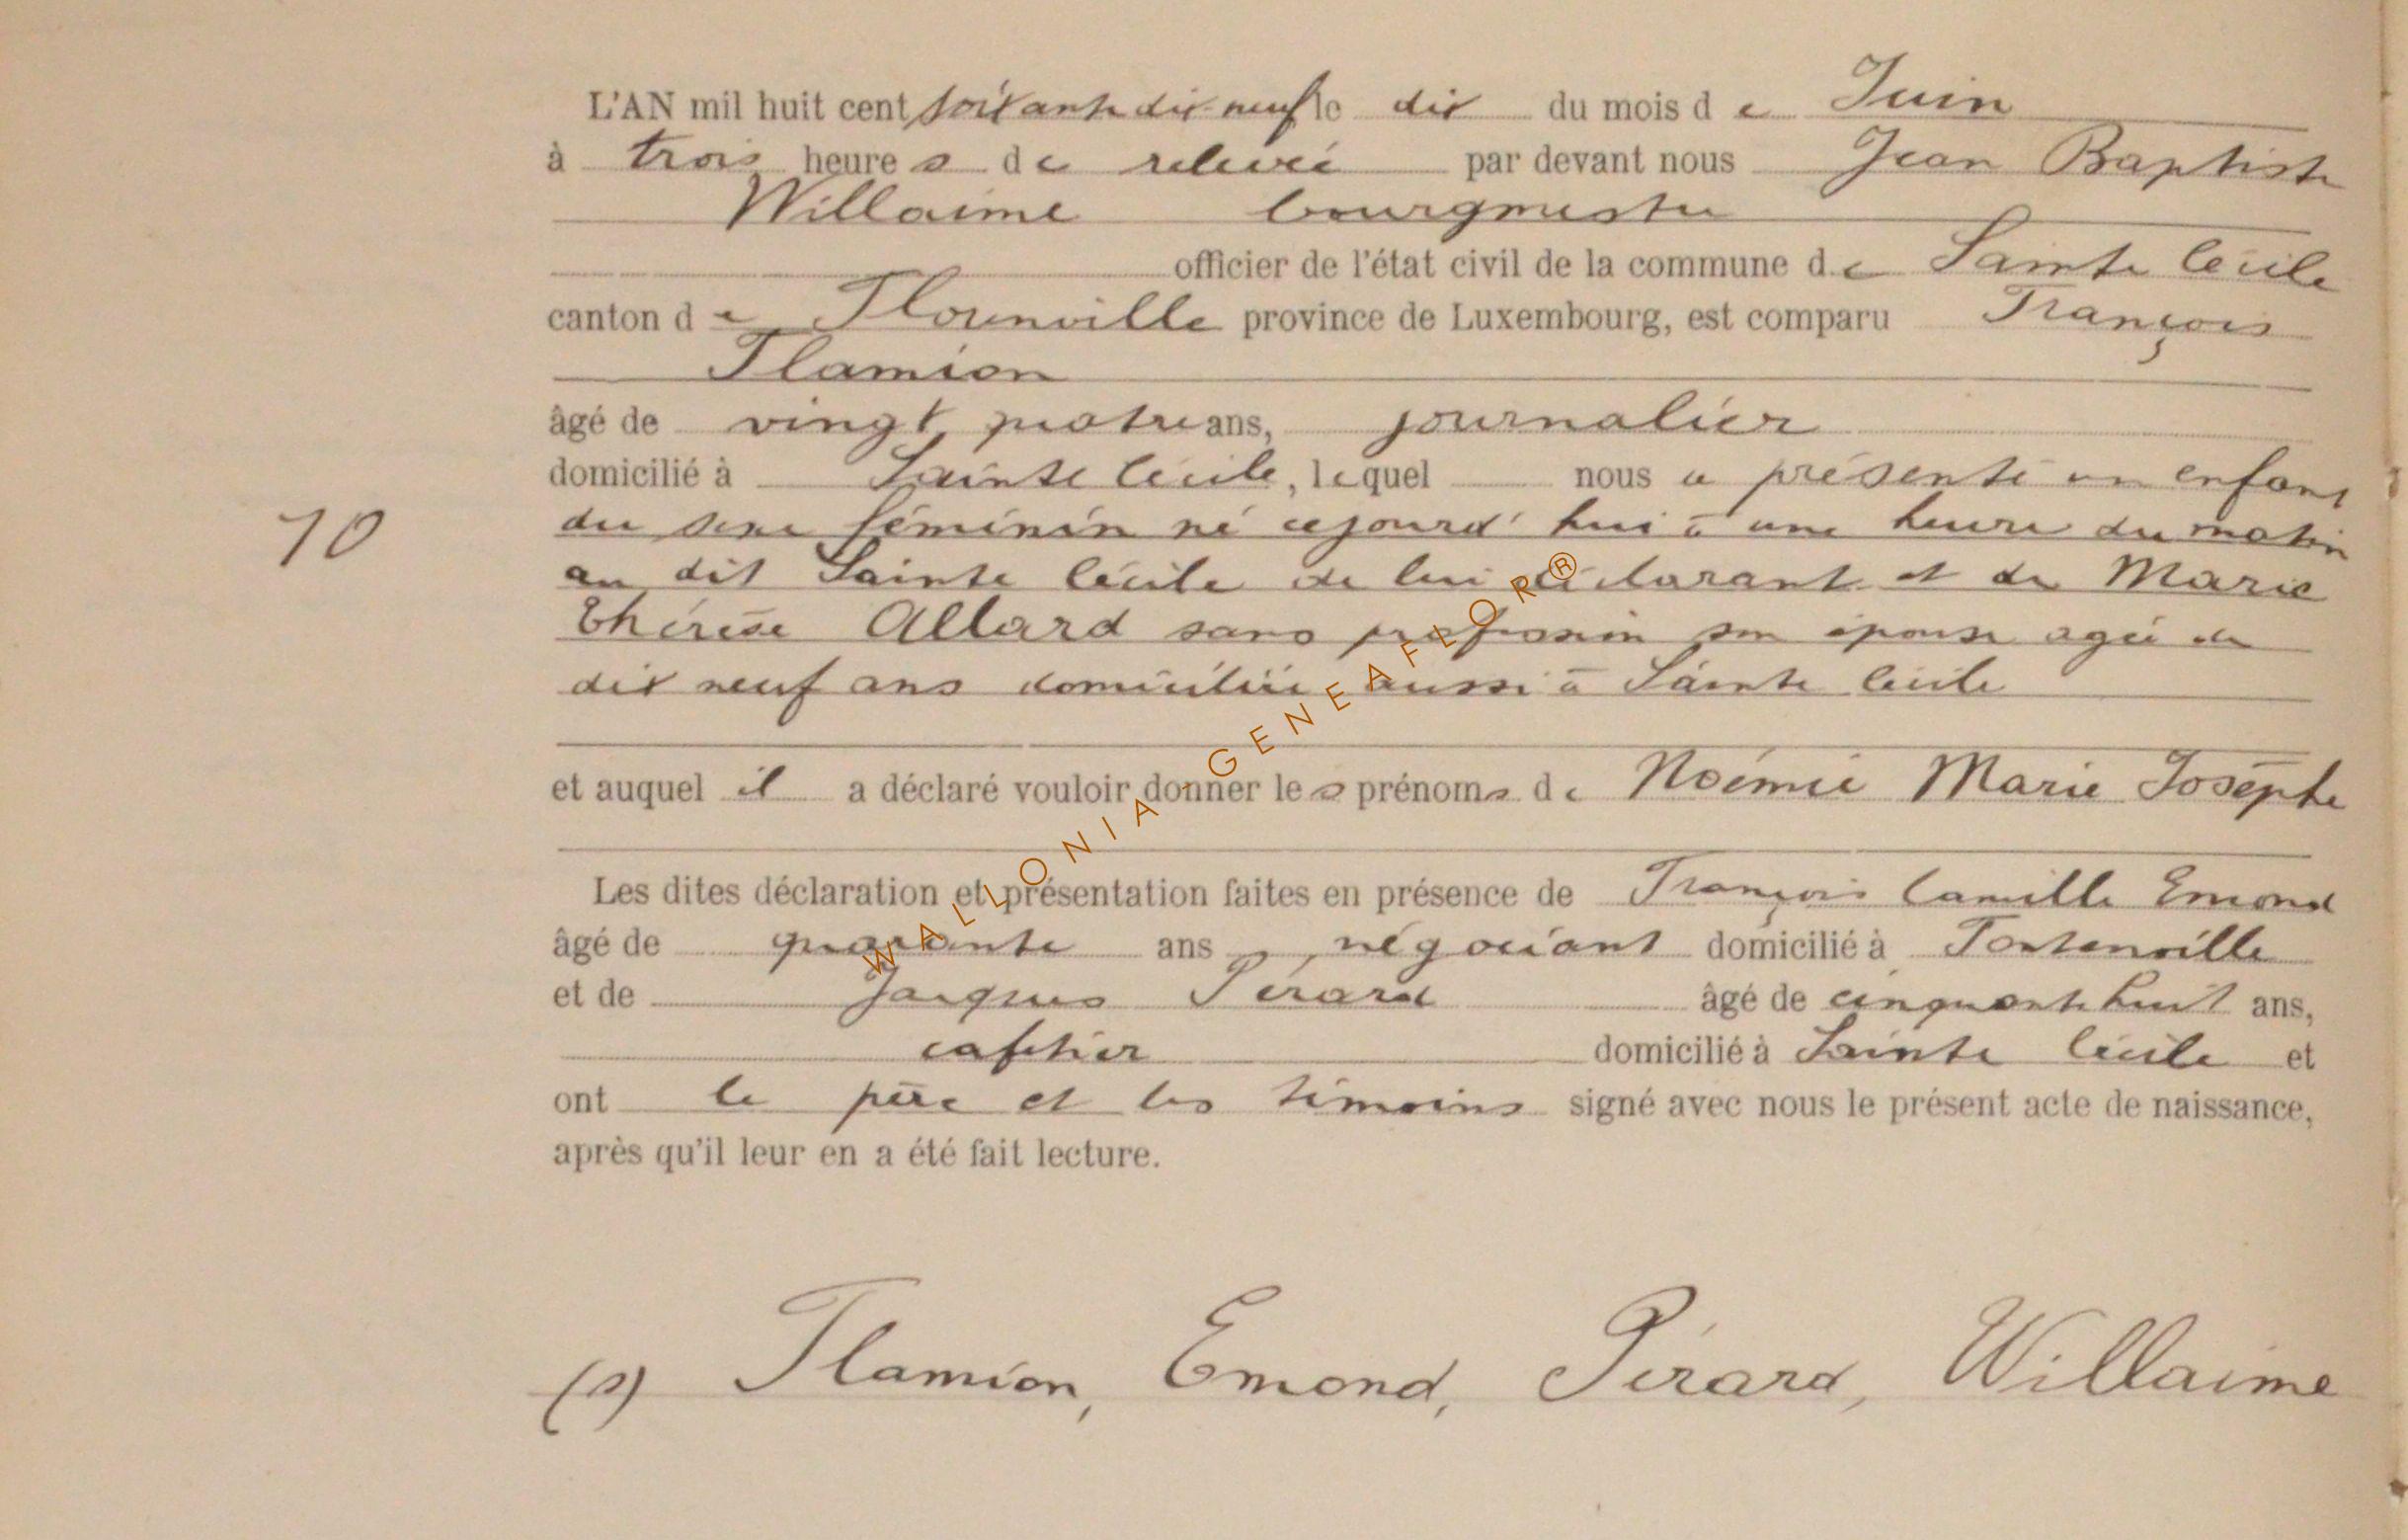 L'AN mil huit cent soixante dix-neuf le dix du mois de Juin
à trois heures de relevée par devant nous Jean Baptiste
Willaime bourgmestre
officier de l'état civil de la commune de Sainte Cécile
canton de Florenville province de Luxembourg, est comparu François
Flamion
âgé de vingt quatre ans, journalier
domicilié à Sainte Cécile, lequel nous a présenté un enfant
du sexe féminin né cejourd'hui à une heure du matin
au dit Sainte Cécile de lui déclarant et de Marie
10
Thérèse Allard sans profession son épouse agée de
dix neuf ans domiciliée aussi à Sainte Cécile
et auquel il a déclaré vouloir donner les prénoms de Noémie Marie Josèphe
Les dites déclaration et présentation faites en présence de François Camille Emond
âgé de quarante ans, négociant domicilié à Fontenoille
et de Jacques Pérard âgé de cinquante huit ans,
cafetier domicilié à Sainte Cécile et
ont le père et les témoins signé avec nous le présent acte de naissance,
après qu'il leur en a été fait lecture.
(s) Flamion, Emond, Pérard, Willaime
WALLONIA - GENEAFLOR®